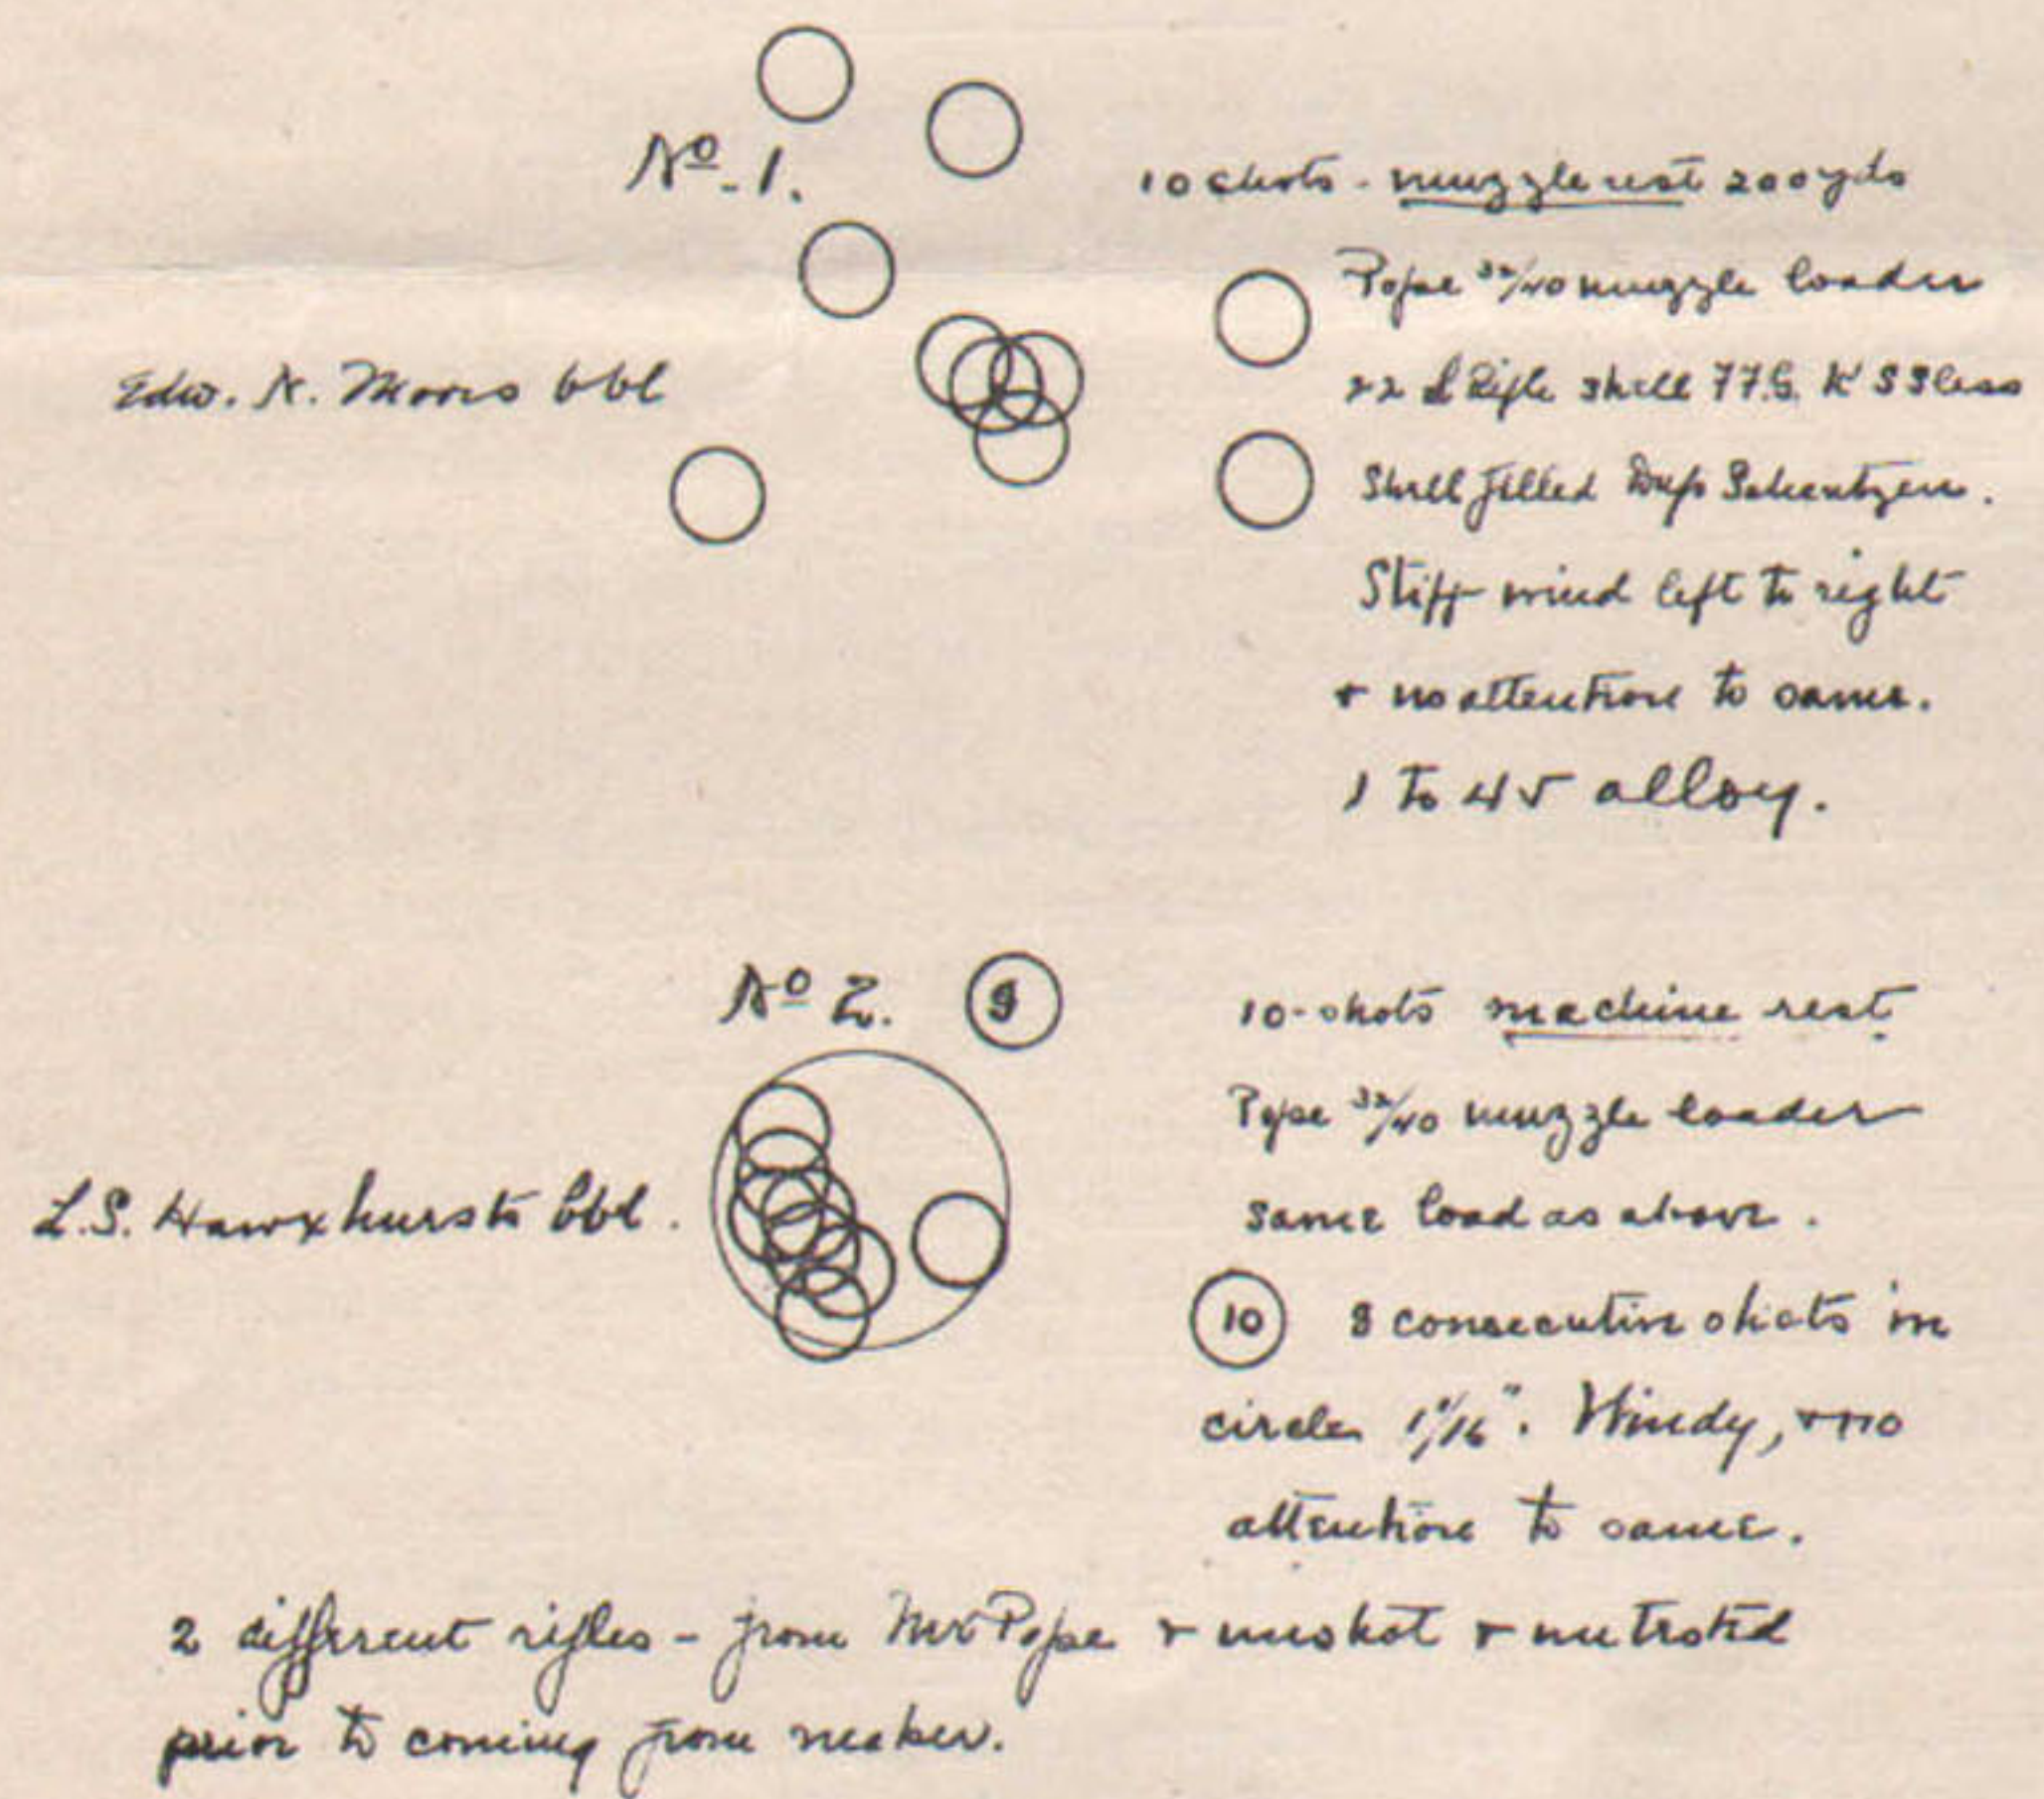 Nº. 1.
10 shots - muzzle rest 200 yds
Pope 32/40 muzzle loader
Edw. K. Moors bbl
22 L Rifle shell 77.G. K S Sless
Shell filled Dup Schentzen.
Stiff wind left to right
+ no attention to same.
1 to 45 alloy.
Nº 2.
9
10-shots machine rest.
Pope 32/40 muzzle loader
L.S. Hawxhursts bbl.
same load as above.
10
8 consecutive shots in
circle Windy, + no
attention to same.
2 different rifles - from Mr Pope + unshot + untested
prior to coming from maker.